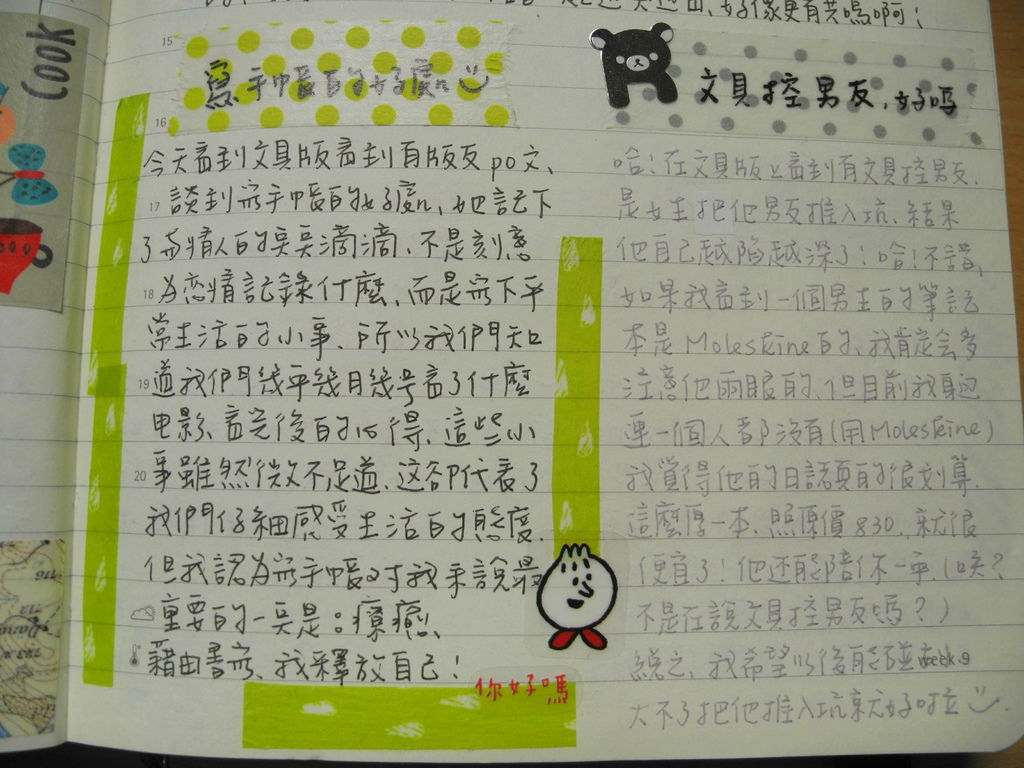 好像更有共鳴啊！
Cook
15
寫手帳的好處
16
今天看到文具版看到有版友po文、
17 談到寫手帳的好處、她記下
了與情人的點點滴滴、不是刻意
18 為戀情記錄什麼、而是寫下平
常生活的小事、所以我們知
19 道我們幾年幾月幾號看了什麼
电影、看完後的心得、這些小
20 事雖然微不足道、这卻代表了
我們仔細感受生活的態度、
但我認為寫手帳對我來說最
重要的一點是：療癒
藉由書寫、我釋放自己！
你好嗎
文具控男友，好嗎
哈！在文具版上看到有文具控男友、
是女生把他男友推入坑、結果
他自己越陷越深了！哈！不錯、
如果我看到一個男生的筆記
本是Moleskine的、我肯定會多
注意他兩眼的、但目前我身边
連一個人都沒有(用Moleskine)
我覺得他的日誌頁的很划算、
這麼厚一本、照原價830、就很
便宜了！他还能陪你一年、(咦？
不是在說文具控男友嗎？)
總之、我希望以後能碰
week.9
大不了把他推入坑就好啦